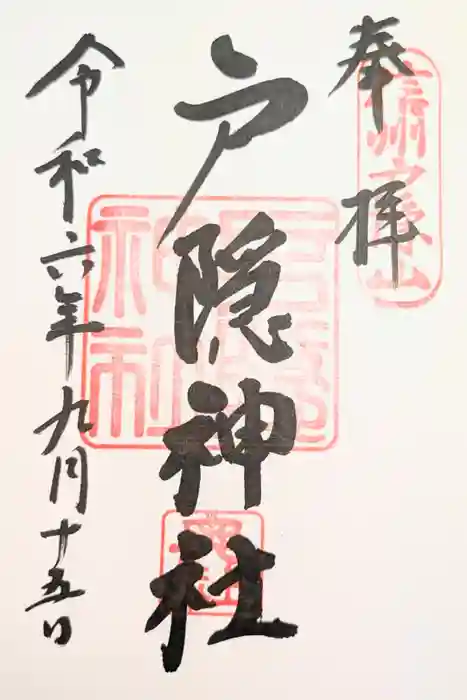 奉拝
信州戸隠山
戸隠神社
戸隠神社
令和六年九月十五日